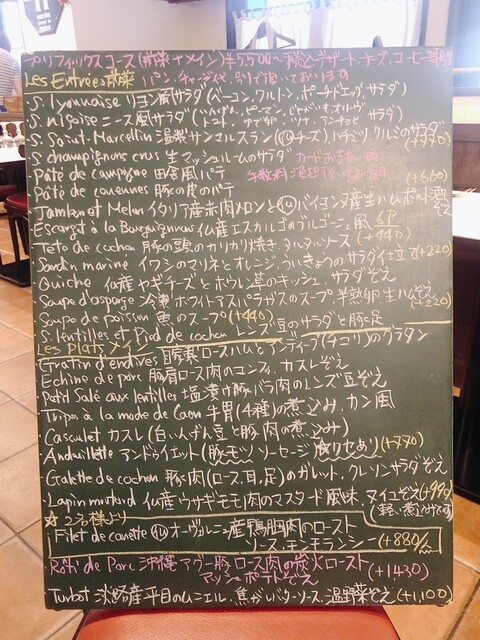 プリフィックスコース(前菜+メイン)¥5,500〜 デザート、チーズ、コーヒー等別
Les Entrées 前菜 パン、チャージ代 別で頂いております
・S. lyonnaise リヨン風サラダ(ベーコン、クルトン、ポーチドエッグ、サラダ)
・S. niçoise ニース風サラダ(トマト、ピーマン、オリーブ ツナ、アンチョビ サラダ)
・S. Saint-Marcellin 温製サンマルスラン(仏チーズ)ハチミツ、クルミのサラダ(+770)
・S champignons crus 生マッシュルームのサラダ
・Pâté de campagne 田舎風パテ (+660)
・Pâté de cévennes 豚の皮のパテ
・Jambon et Melon イタリア産赤肉メロンと仏バイヨンヌ産生ハム ポルト酒ぞえ
・Escargot à la Bourguignonne 仏産エスカルゴのブルゴーニュ風 6P (+440)
・Tête de cochon 豚の頭のカリカリ焼き、タルタルソース
・Sardin mariné イワンのマリネとオレンジ、ういきょうのサラダ仕立て(+220)
・Quiche 仏産ヤギチーズとホウレン草のキッシュ、サラダぞえ
・Soupe d'asperge 冷製ホワイトアスパラガスのスープ 半熟卵、生ハムぞえ(+220)
・Soupe de poisson 魚のスープ(+440)
・S. lentilles et Pied de cochon レンズ豆のサラダと豚足
Les plats メイン
・Gratin d'endives 自家製ロースハムとアンディーブ(チコリ)のグラタン
・Échine de porc 豚肩ロース肉のコンフィ、カスレぞえ
・Petit Salé aux lentilles 塩漬け豚バラ肉のレンズ豆ぞえ
・Tripes à la mode de Caen 牛胃(4種)の煮込み、カン風
・Cassoulet カスレ(白いんげん豆と豚肉の煮込み)
・Andouillette アンドゥイエット(豚モツ ソーセージ 臭クセあり)(+770)
・Galette de cochon 豚肉(ロース、耳、足)のガレット、クレソンサラダぞえ
・Lapin moutard 仏産ウサギモモ肉のマスタード風味、ヌイユぞえ(+990)
(軽い煮込みです)
☆2名様より
・Filet de canette 仏オーヴェルニュ産鴨胸肉のロースト
ソース、モンモランシー(+880/人)
・Rôti de Porc 沖縄アグー豚ロース肉の炭火ロースト
マッシュポテトぞえ (+1430)
・Turbot 淡路産平目のムニエル、焦がしバターソース、温野菜ぞえ(+1,100)